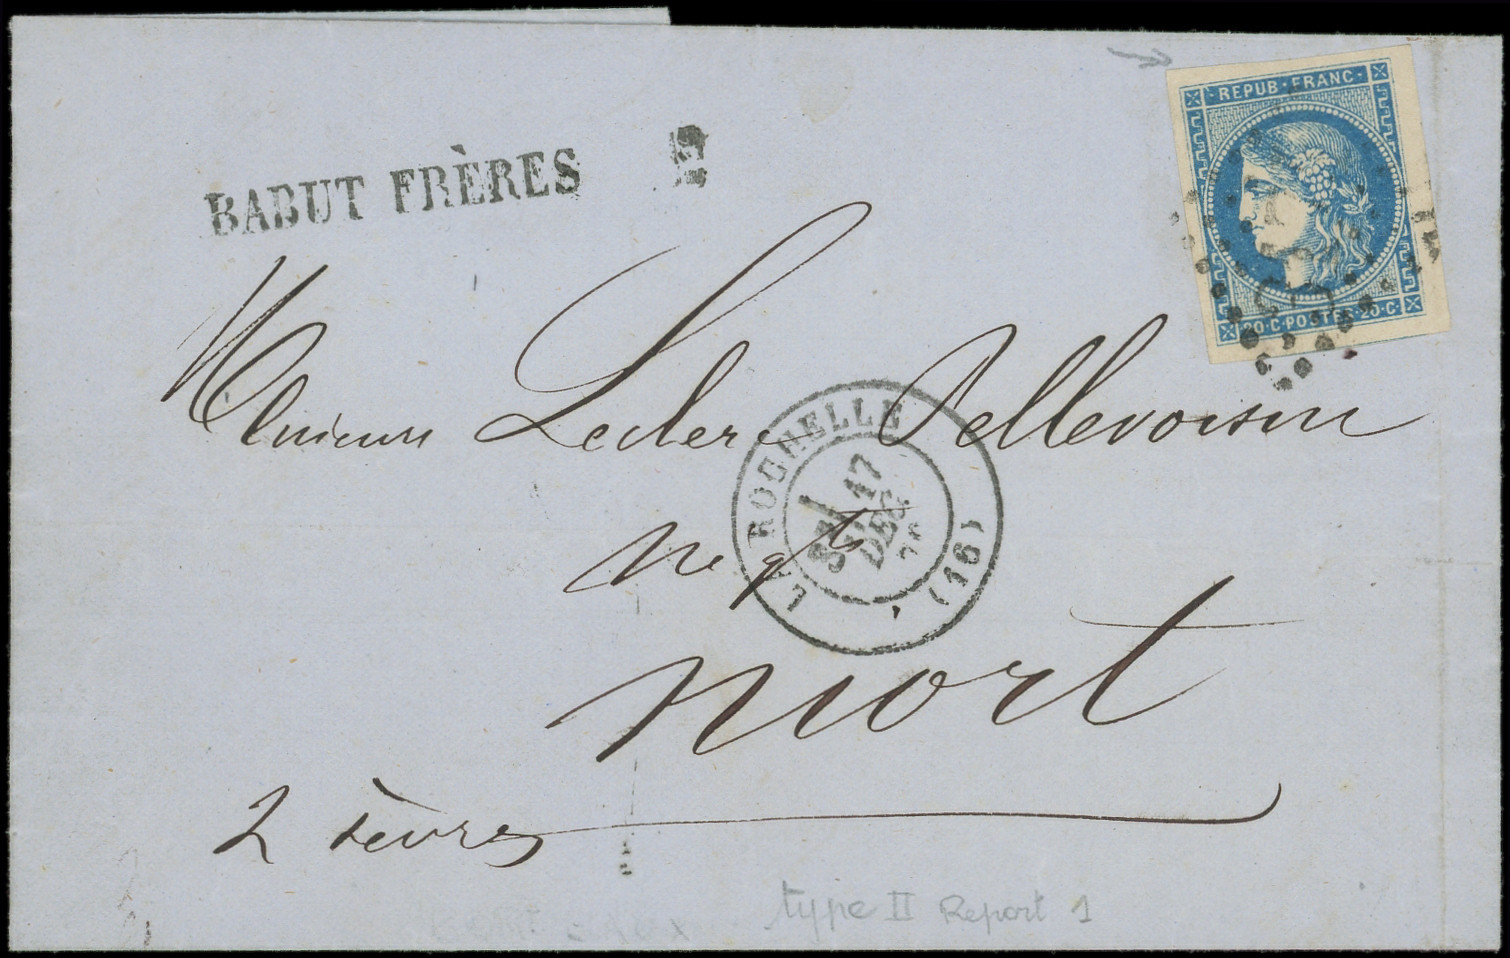 REPUB · FRANC ·
BABUT FRÈRES
20 · C · POSTES · 20 · C
Messieurs Leclerc Pellevoisin
LA ROCHELLE
17
DEC
70
(16)
negts
Niort
2 Sèvres
type II Report 1